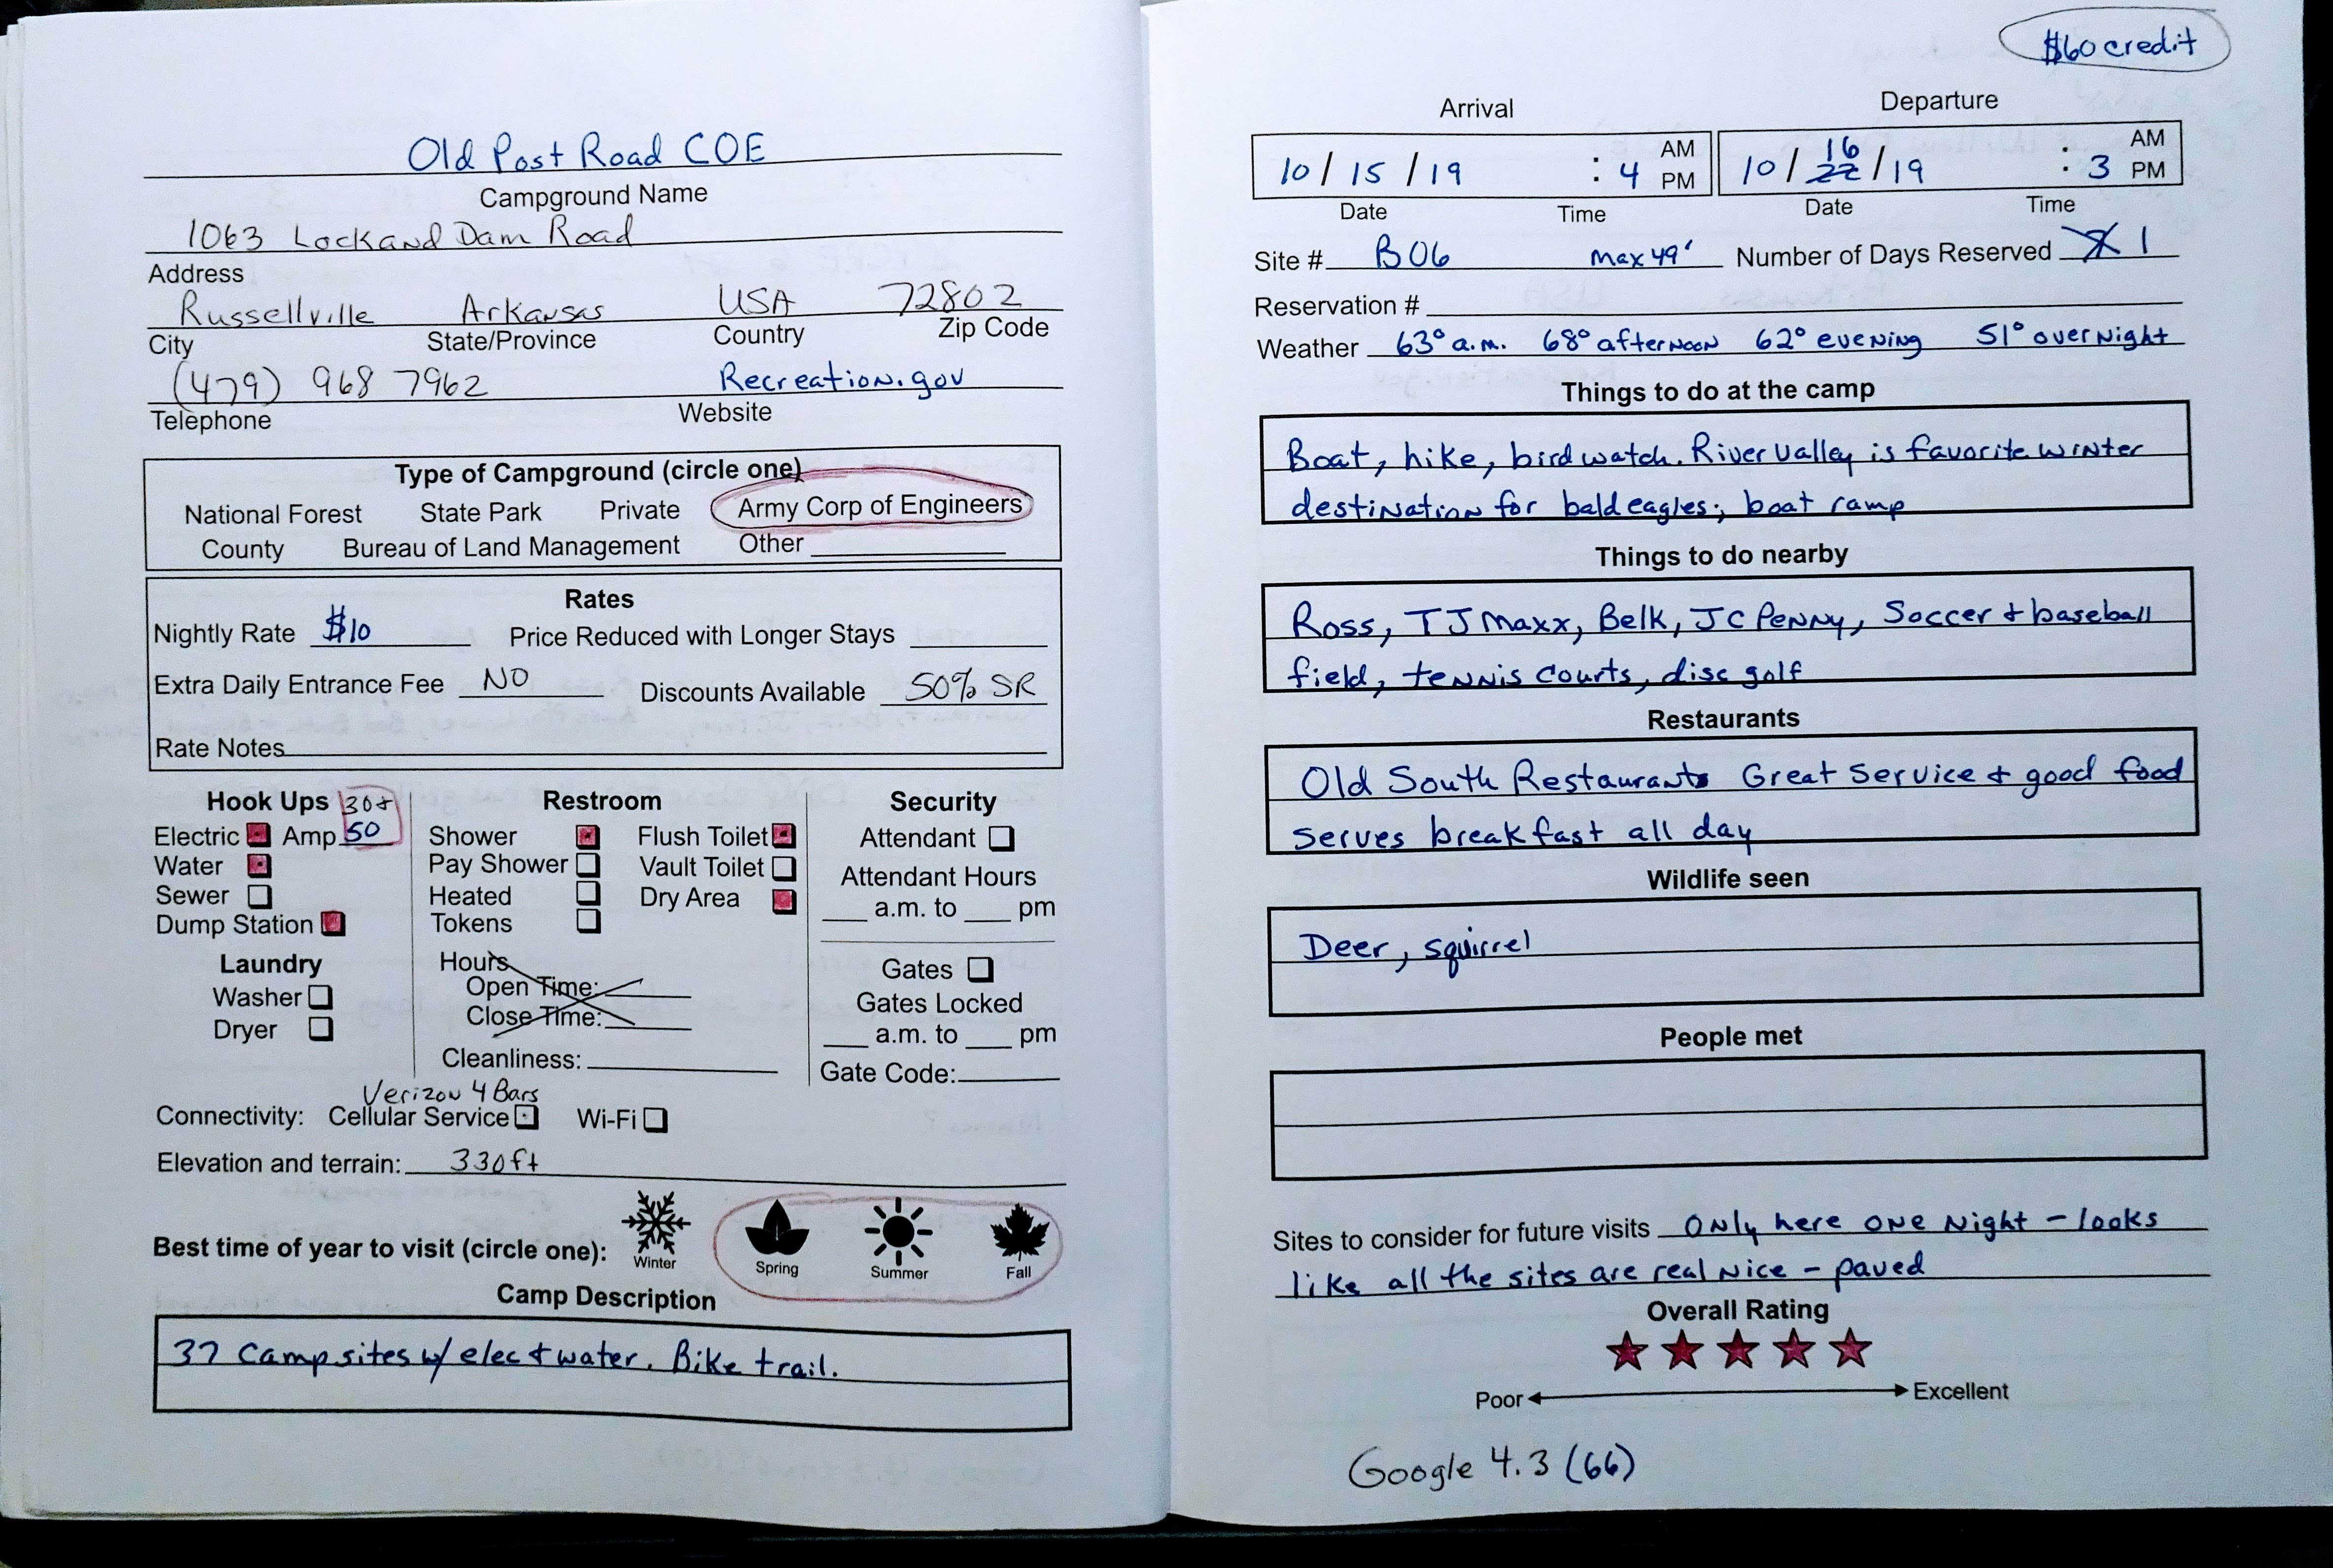 Old Post Road COE
Campground Name
1063 Lock and Dam Road
Address
Russellville Arkansas USA 72802
City State/Province Country Zip Code
(479) 968 7962 Recreation.gov
Telephone Website
Type of Campground (circle one)
National Forest State Park Private Army Corp of Engineers
County Bureau of Land Management Other
Rates
Nightly Rate $10 Price Reduced with Longer Stays
Extra Daily Entrance Fee NO Discounts Available 50% SR
Rate Notes
Hook Ups 30+
Electric Amp 50
Water
Sewer
Dump Station
Laundry
Washer
Dryer
Restroom
Shower Flush Toilet
Pay Shower Vault Toilet
Heated Dry Area
Tokens
Hours
Open Time:
Close Time:
Cleanliness:
Security
Attendant
Attendant Hours
___ a.m. to ___ pm
Gates
Gates Locked
___ a.m. to ___ pm
Gate Code:
Verizon 4 Bars
Connectivity: Cellular Service Wi-Fi
Elevation and terrain: 330ft
Best time of year to visit (circle one): Winter Spring Summer Fall
Camp Description
37 Campsites w/ elec + water. Bike trail.
$60 credit
Arrival Departure
10 / 15 / 19 : 4 AM PM 10 / 16 22 / 19 : 3 AM PM
Date Time Date Time
Site # B06 max 49' Number of Days Reserved 1
Reservation #
Weather 63° a.m. 68° afternoon 62° evening 51° overnight
Things to do at the camp
Boat, hike, bird watch. River Valley is favorite winter
destination for bald eagles; boat ramp
Things to do nearby
Ross, TJ Maxx, Belk, JC Penny, Soccer + baseball
field, tennis courts, disc golf
Restaurants
Old South Restaurant Great Service + good food
serves breakfast all day
Wildlife seen
Deer, squirrel
People met
Sites to consider for future visits Only here one night - looks
like all the sites are real nice - paved
Overall Rating
Poor Excellent
Google 4.3 (66)